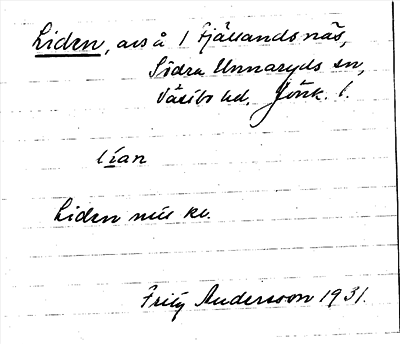 Liden, avs å 1 Fjällandsnäs,
Södra Unnaryds sn,
Västbo hd. Jönk. l.
lían
Liden nu kv.
Fritz Andersson 1931.